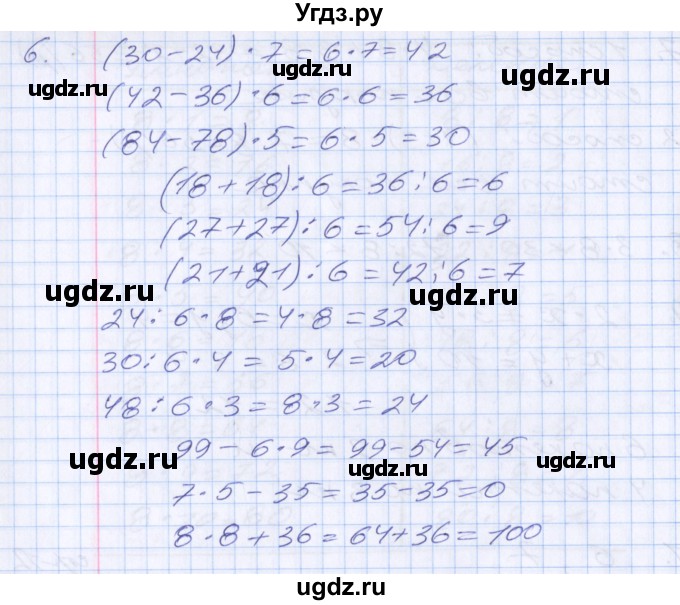 Угдз.ру
6. (30-24)·7=6·7=42
ugdz.ru ugdz.ru
(42-36)·6=6·6=36
(84-78)·5=6·5=30
ugdz.ru
(18+18):6=36:6=6
(27+27):6=54:6=9
(21+21):6=42:6=7
ugdz.ru ugdz.ru
24:6·8=4·8=32
30:6·4=5·4=20
48:6·3=8·3=24
99-6·9=99-54=45
ugdz.ru ugdz.ru ugdz.ru
7·5-35=35-35=0
8·8+36=64+36=100
ugdz.ru